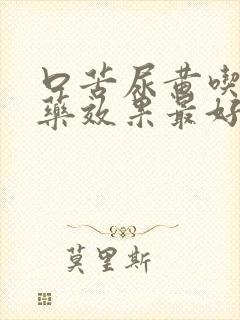 口苦尿黄喫
藥效果最好
莫里斯